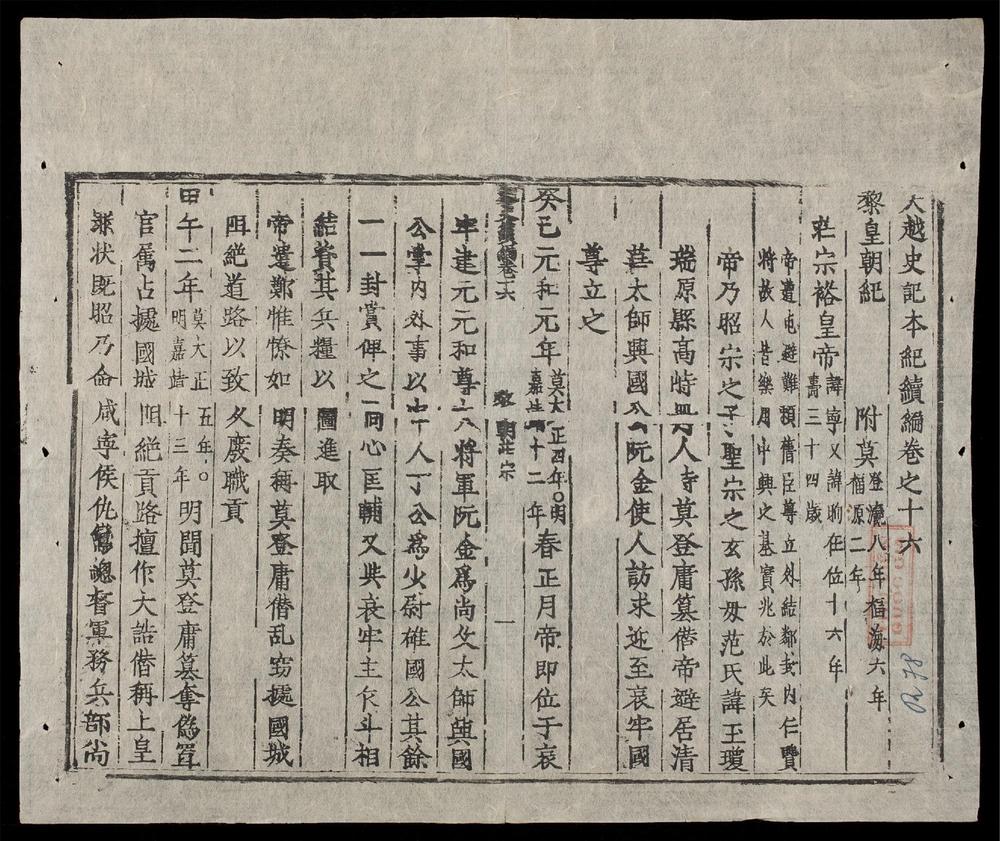 大越史記本紀續編卷之十六
黎皇朝紀 附莫登瀛八年福海六年福源二年
莊宗裕皇帝 諱寧又諱昫在位十六年壽三十四歲
帝遭屯避難頼舊臣尊立外結鄰封内仁賢
將故人皆樂用中興之基實兆於此矣
帝乃昭宗之子聖宗之玄孫母范氏諱玉瓊
瑞原縣高峙 人寺莫登庸篡僣帝避居清
華太師興國公阮金使人訪求迎至哀牢國
尊立之
癸巳元和元年莫大正四年〇明嘉靖十二年春正月帝即位于哀
卷之十六 黎朝莊宗 一
牢建元元和尊大將軍阮金爲尚父太師興國
公掌内外事以中人丁公爲少尉確國公其餘
一一封賞俾之同心匡輔又与哀牢主乍斗相
結資其兵糧以圖進取
帝遣鄭惟憭如明奏稱莫登庸僣乱窃據國城
阻絶道路以致久廢職貢
甲午二年莫大正五年〇明嘉靖十三年明聞莫登庸篡奪偽置
官属占據國城阻絶貢路擅作大誥僣稱上皇
罪状既昭乃命咸寧侯仇鸞總督軍務兵部尚
Q.78